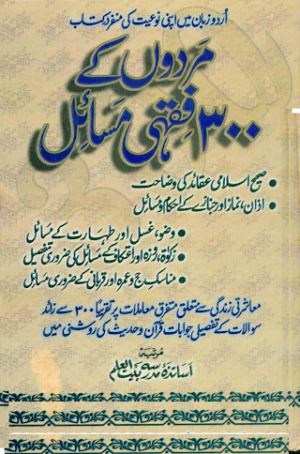 اُردو زبان میں اپنی نوعیت کی منفرد کتاب
مَردوں کے
۳۰۰ فِقہی مسَائِل
• صحیح اسلامی عقائد کی وضاحت
• اذان، نماز اور جنازے کے احکام و مسائل
• وضو، غسل اور طہارت کے مسائل
• زکوٰۃ، روزہ اور اعتکاف کے مسائل کی ضروری تفصیل
• مناسکِ حج و عمرہ اور قربانی کے ضروری مسائل
معاشرتی زندگی سے متعلق متفرق معاملات پر تقریباً ۳۰۰ سے زائد
سوالات کے تفصیلی جوابات قرآن و حدیث کی روشنی میں
مرتبہ
اساتذہ مدرسہ بیت العلم